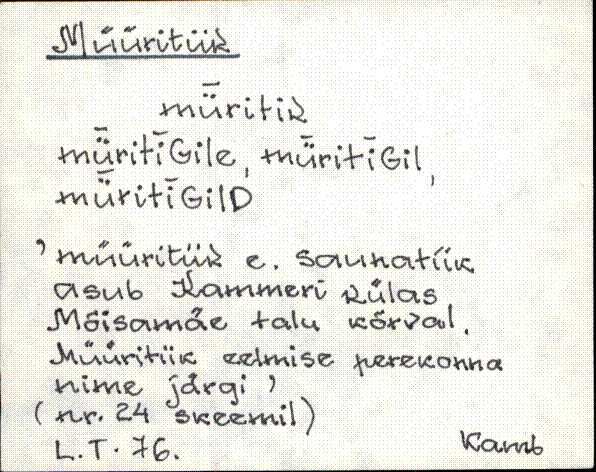 Müüritiik
mǖritik
mǖritīGile, mǖritīGil,
mǖritīGilD
’müüritiik e. saunatiik
asub Kammeri külas
Mõisamäe talu kõrval.
Müüritiik eelmise perekonna
nime järgi’
(nr. 24 skeemil)
L.T. 76. Kamb